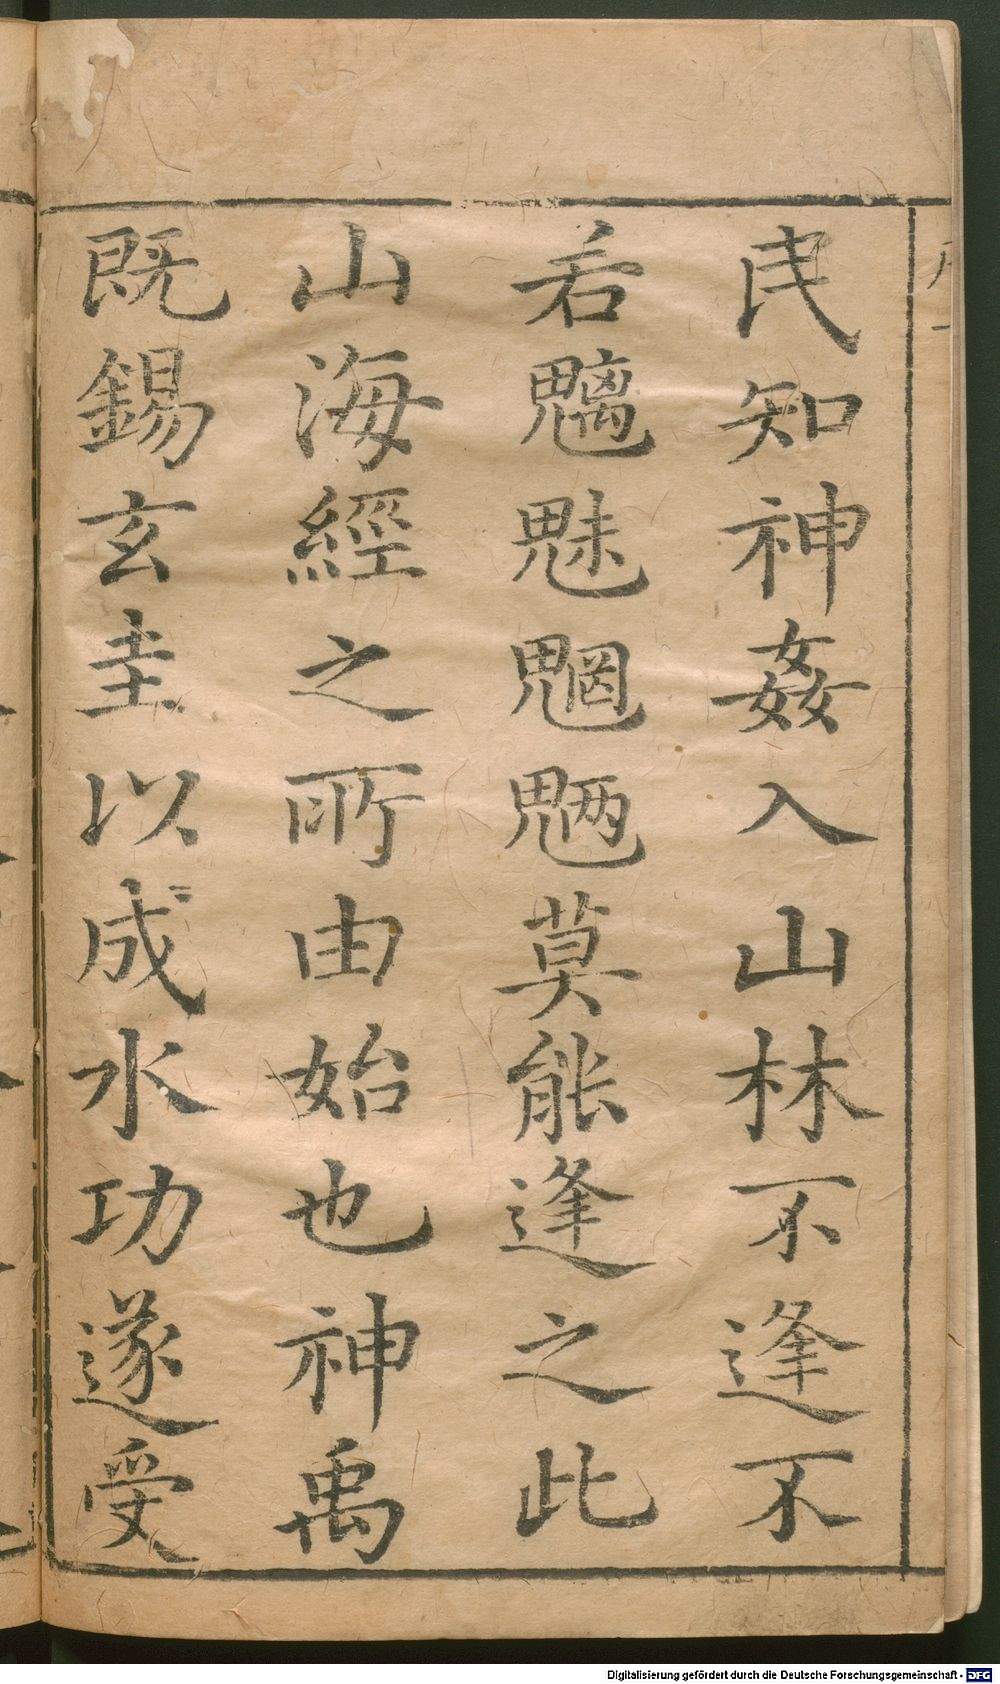 民知神姦入山林不逢不
若魑魅魍魎莫能逢之此
山海經之所由始也神禹
既錫玄圭以成水功遂受
Digitalisierung gefördert durch die Deutsche Forschungsgemeinschaft - DFG